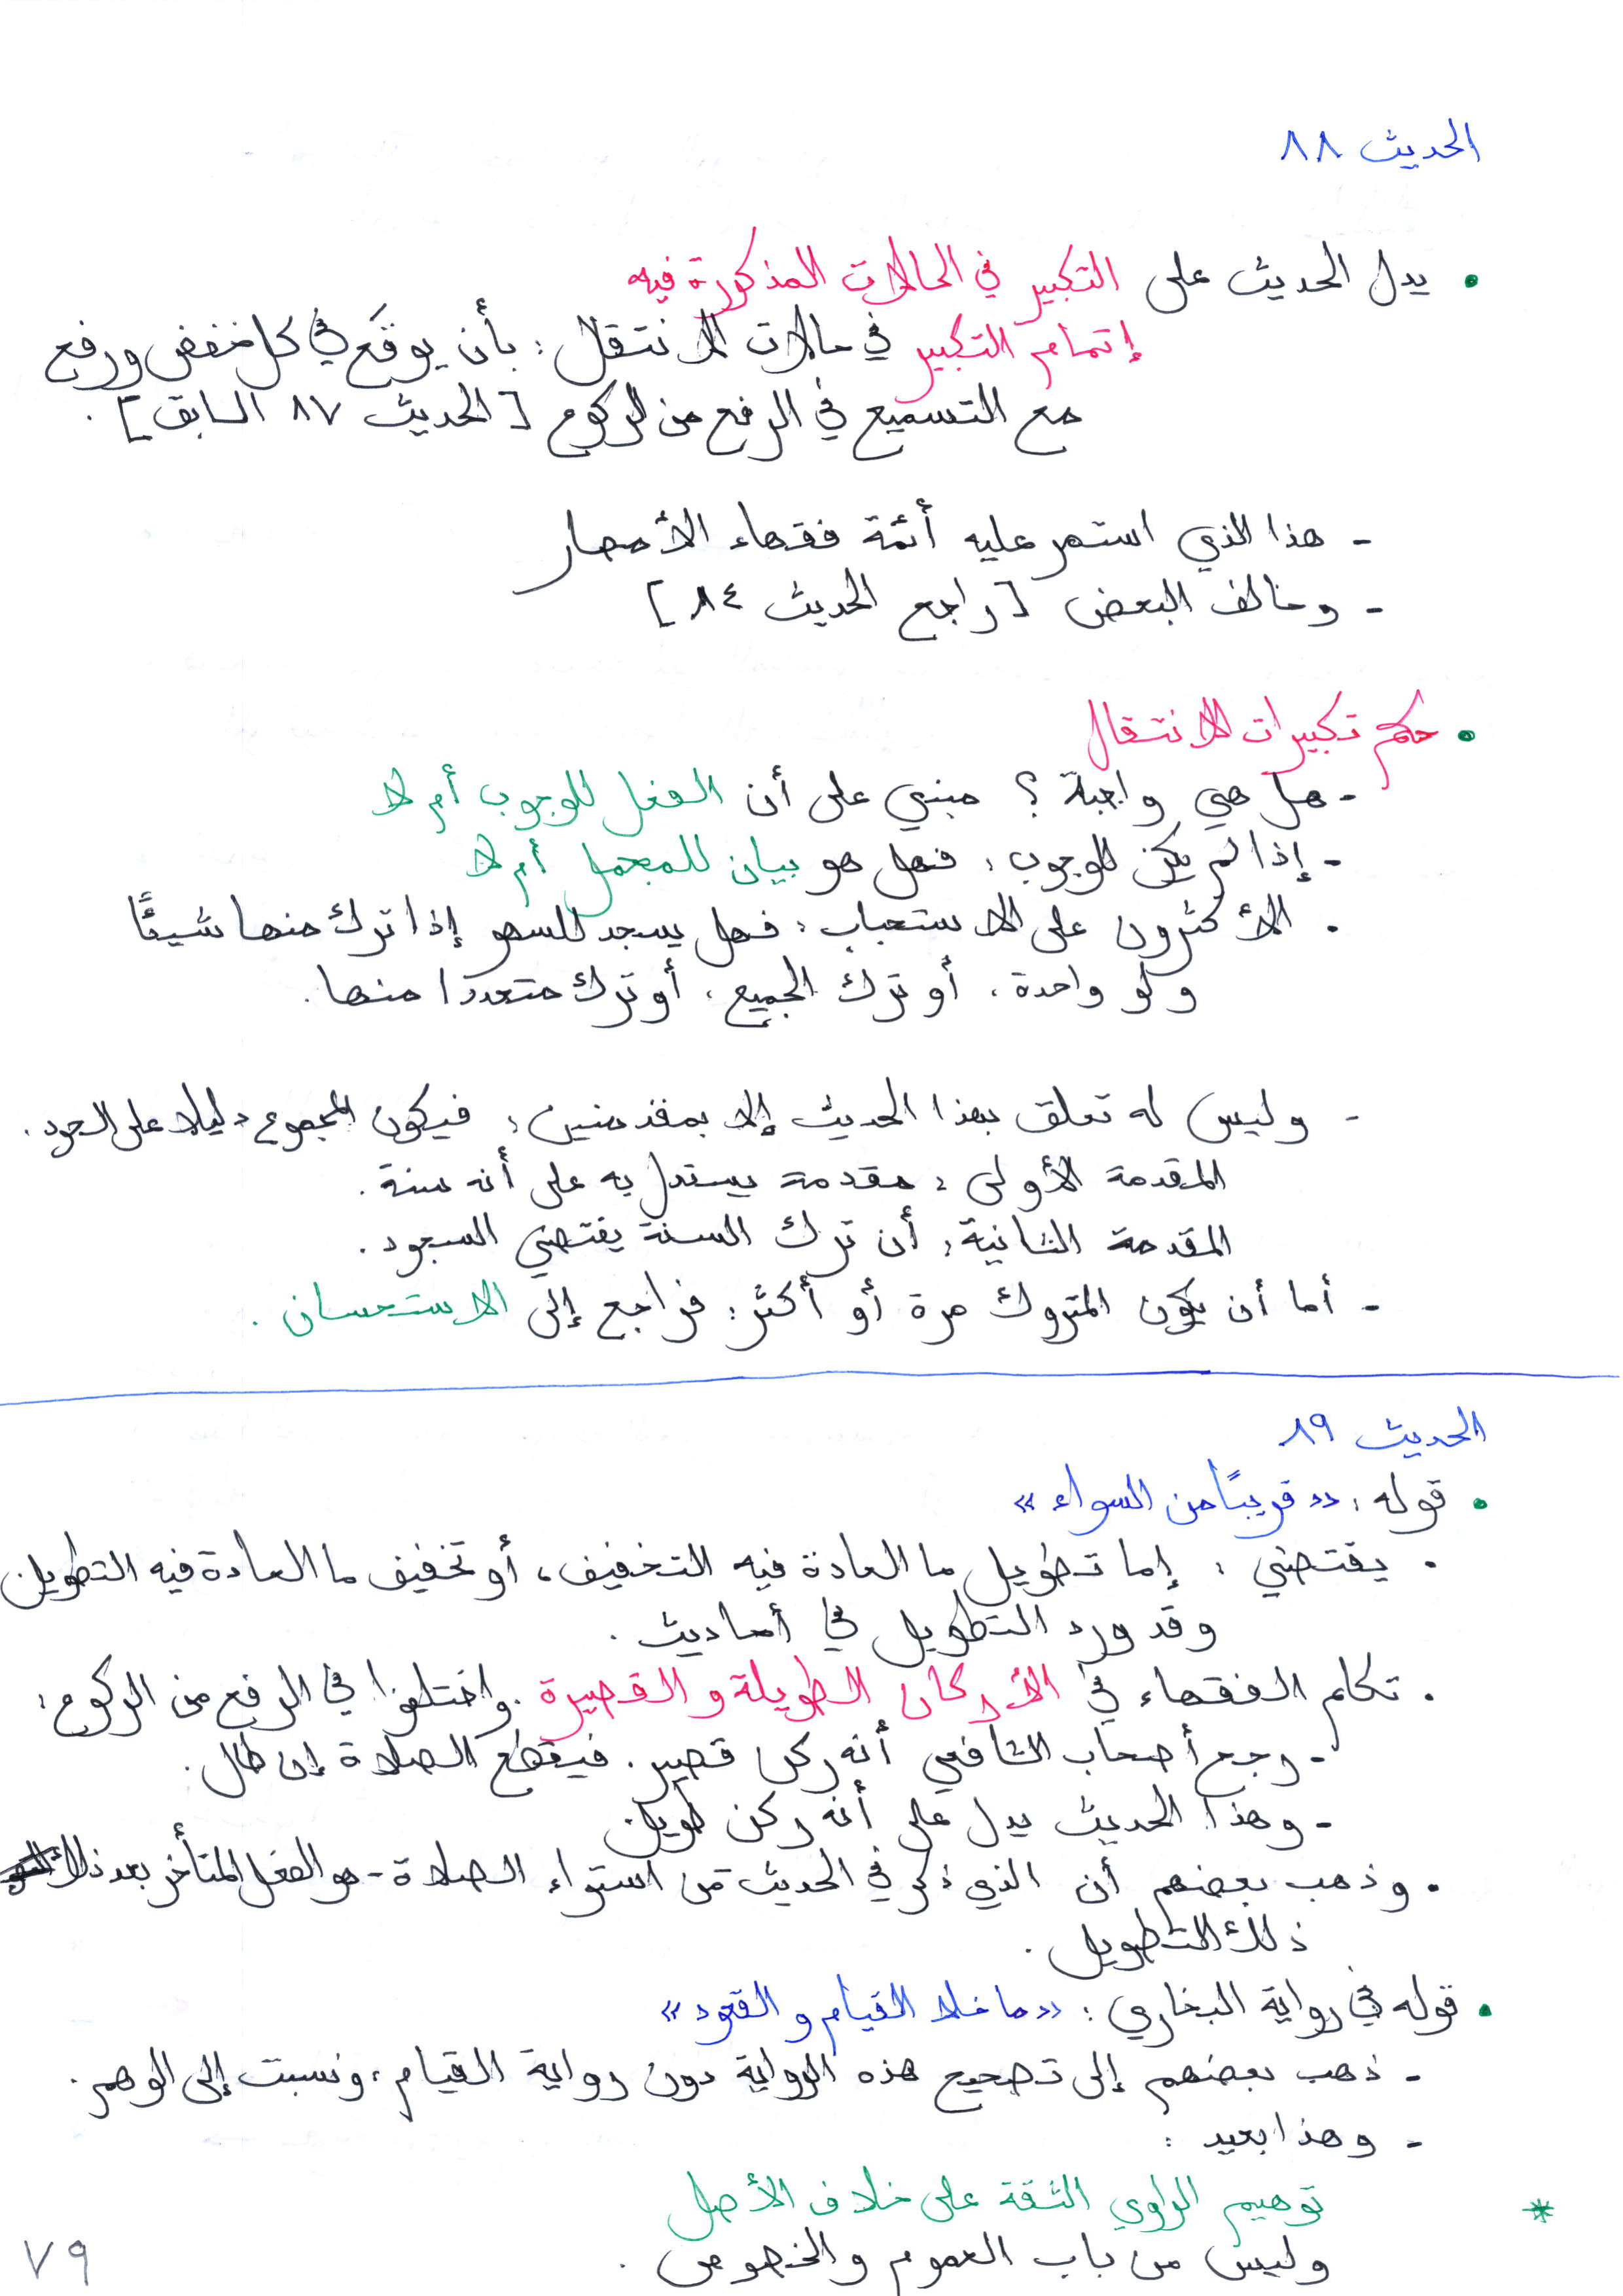 الحديث ٨٨
• يدل الحديث على التكبير في الحالات المذكورة فيه
إتمام التكبير في حالات الانتقال : بأن يوقَع في كل خفض ورفع
مع التسميع في الرفع من الركوع [الحديث ٨٧ السابق] .
- هذا الذي استمر عليه أئمة فقهاء الأمصار
- وخالف البعض [راجع الحديث ٨٤]
• حكم تكبيرات الانتقال
- هل هي واجبة ؟ مبني على أن الفعل للوجوب أم لا
- إذا لم يكن للوجوب : فهل هو بيان للمجمل أم لا
. الأكثرون على الاستحباب : فهل يسجد للسهو إذا ترك منها شيئًا
ولو واحدة ، أو ترك الجميع ، أو ترك متعددا منها .
- وليس له تعلق بهذا الحديث إلا بمقدمتين : فيكون المجموع دليلا على السجود .
المقدمة الأولى : مقدمة يستدل به على أنه سنة .
المقدمة الثانية : أن ترك السنة يقتضي السجود .
- أما أن يكون المتروك مرة أو أكثر : فراجع إلى الاستحسان .
الحديث ٨٩
• قوله : «قريبًا من السواء»
. يقتضي : إما تطويل ما العادة فيه التخفيف ، أو تخفيف ما العادة فيه التطويل
وقد ورد التطويل في أحاديث .
. تكلم الفقهاء في الأركان الطويلة والقصيرة . واختلفوا في الرفع من الركوع :
- رجح أصحاب الشافعي أنه ركن قصير . فيقطع الصلاة إن طال .
- وهذا الحديث يدل على أنه ركن طويل .
. وذهب بعضهم أن الذي ذكر في الحديث من استواء الصلاة - هو الفعل المتأخر بعد ذلك
ذلك التطويل .
• قوله في رواية البخاري : «ما خلا القيام والقعود»
- ذهب بعضهم إلى تصحيح هذه الرواية دون رواية القيام ، ونسبت إلى الوهم .
- وهذا بعيد :
* توهيم الراوي الثقة على خلاف الأصل
وليس من باب العموم والخصوص .
٧٩